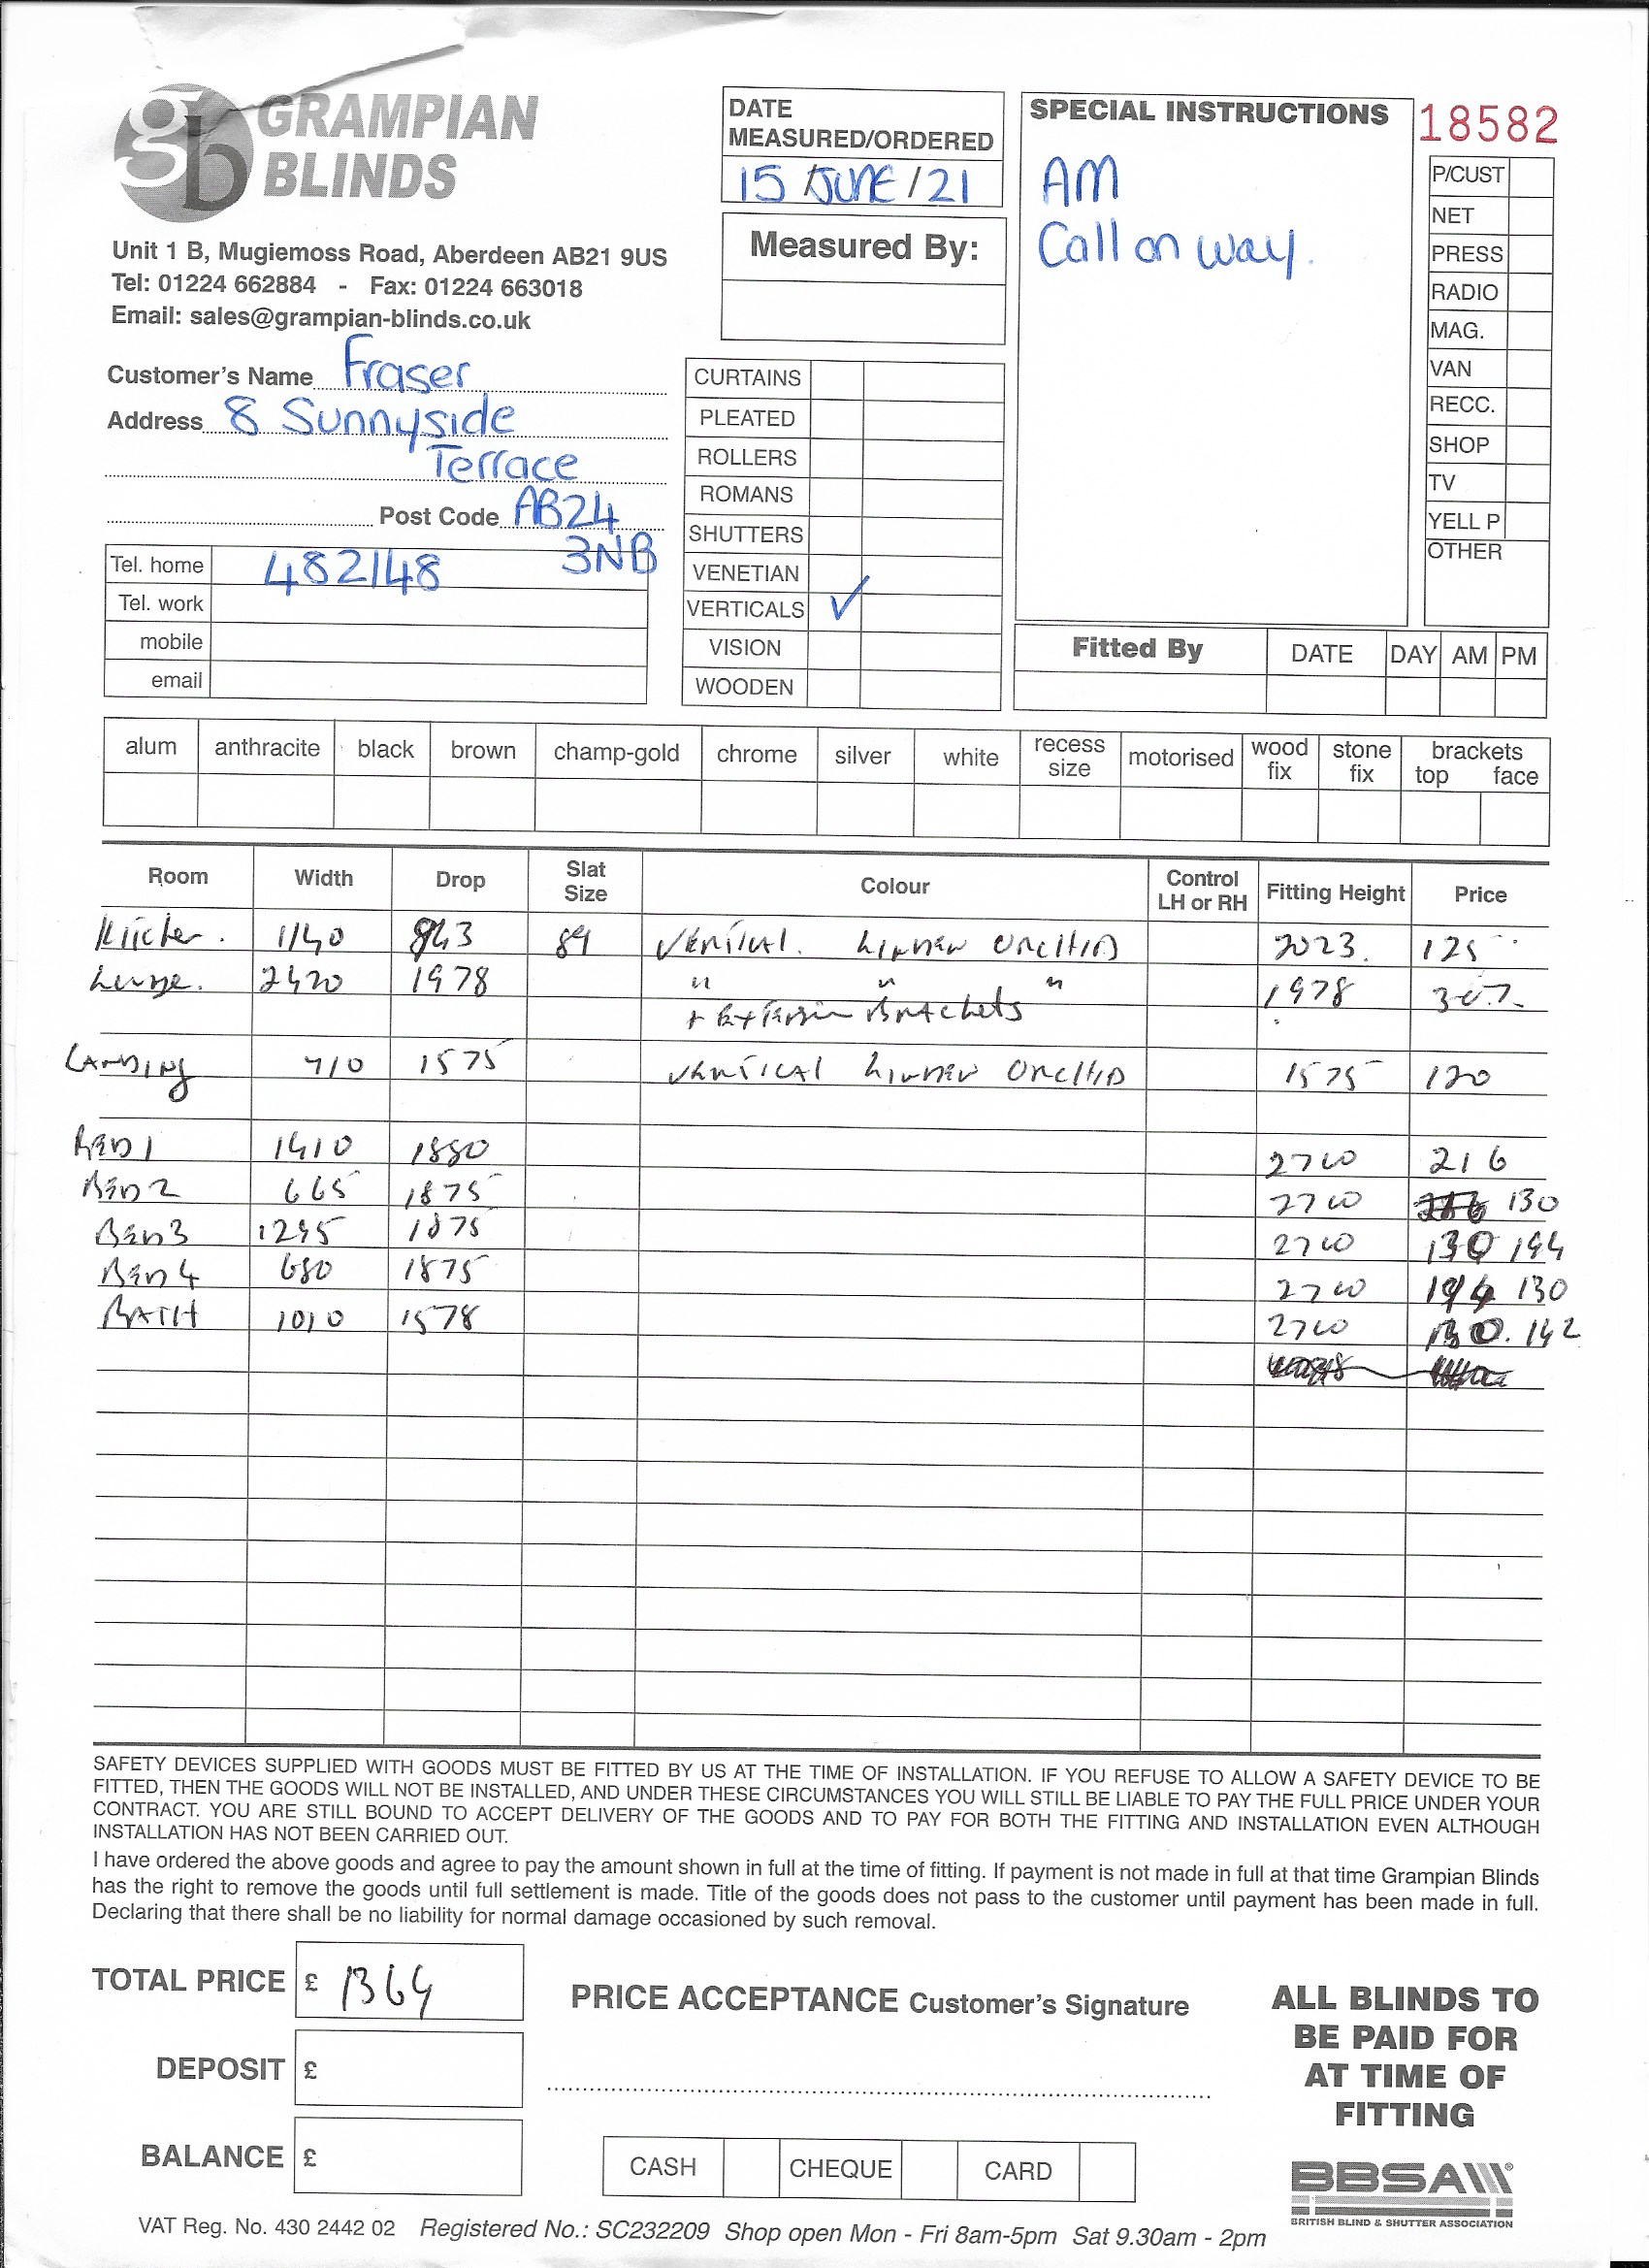 GRAMPIAN
BLINDS
Unit 1 B, Mugiemoss Road, Aberdeen AB21 9US
Tel: 01224 662884 - Fax: 01224 663018
Email: sales@grampian-blinds.co.uk
DATE
MEASURED/ORDERED
15 JUNE/21
Measured By:
SPECIAL INSTRUCTIONS
AM
Call on way.
18582
P/CUST
NET
PRESS
RADIO
MAG.
VAN
RECC.
SHOP
TV
YELL P
OTHER
Customer's Name Fraser
Address 8 Sunnyside
Terrace
Post Code AB24
3NB
Tel. home 482148
Tel. work
mobile
email
CURTAINS
PLEATED
ROLLERS
ROMANS
SHUTTERS
VENETIAN
VERTICALS ✓
VISION
WOODEN
Fitted By DATE DAY AM PM
alum anthracite black brown champ-gold chrome silver white recess size motorised wood fix stone fix brackets top face
Room Width Drop Slat Size Colour Control LH or RH Fitting Height Price
Kitchen. 1140 843 89 VERTICAL. ORCHID 2023. 125
Lounge. 2420 1978 " " " 1978 307
+ Extension Brackets
LANDING 710 1575 VERTICAL ORCHID 1575 120
BED 1 1410 1880 2760 216
BED 2 665 1875 2760 130
BED 3 1295 1875 2760 130 194
BED 4 680 1875 2760 194 130
BATH 1010 1578 2760 130. 142
SAFETY DEVICES SUPPLIED WITH GOODS MUST BE FITTED BY US AT THE TIME OF INSTALLATION. IF YOU REFUSE TO ALLOW A SAFETY DEVICE TO BE
FITTED, THEN THE GOODS WILL NOT BE INSTALLED, AND UNDER THESE CIRCUMSTANCES YOU WILL STILL BE LIABLE TO PAY THE FULL PRICE UNDER YOUR
CONTRACT. YOU ARE STILL BOUND TO ACCEPT DELIVERY OF THE GOODS AND TO PAY FOR BOTH THE FITTING AND INSTALLATION EVEN ALTHOUGH
INSTALLATION HAS NOT BEEN CARRIED OUT.
I have ordered the above goods and agree to pay the amount shown in full at the time of fitting. If payment is not made in full at that time Grampian Blinds
has the right to remove the goods until full settlement is made. Title of the goods does not pass to the customer until payment has been made in full.
Declaring that there shall be no liability for normal damage occasioned by such removal.
TOTAL PRICE £ 1364
DEPOSIT £
BALANCE £
PRICE ACCEPTANCE Customer's Signature
CASH CHEQUE CARD
ALL BLINDS TO
BE PAID FOR
AT TIME OF
FITTING
BBSA
BRITISH BLIND & SHUTTER ASSOCIATION
VAT Reg. No. 430 2442 02 Registered No.: SC232209 Shop open Mon - Fri 8am-5pm Sat 9.30am - 2pm